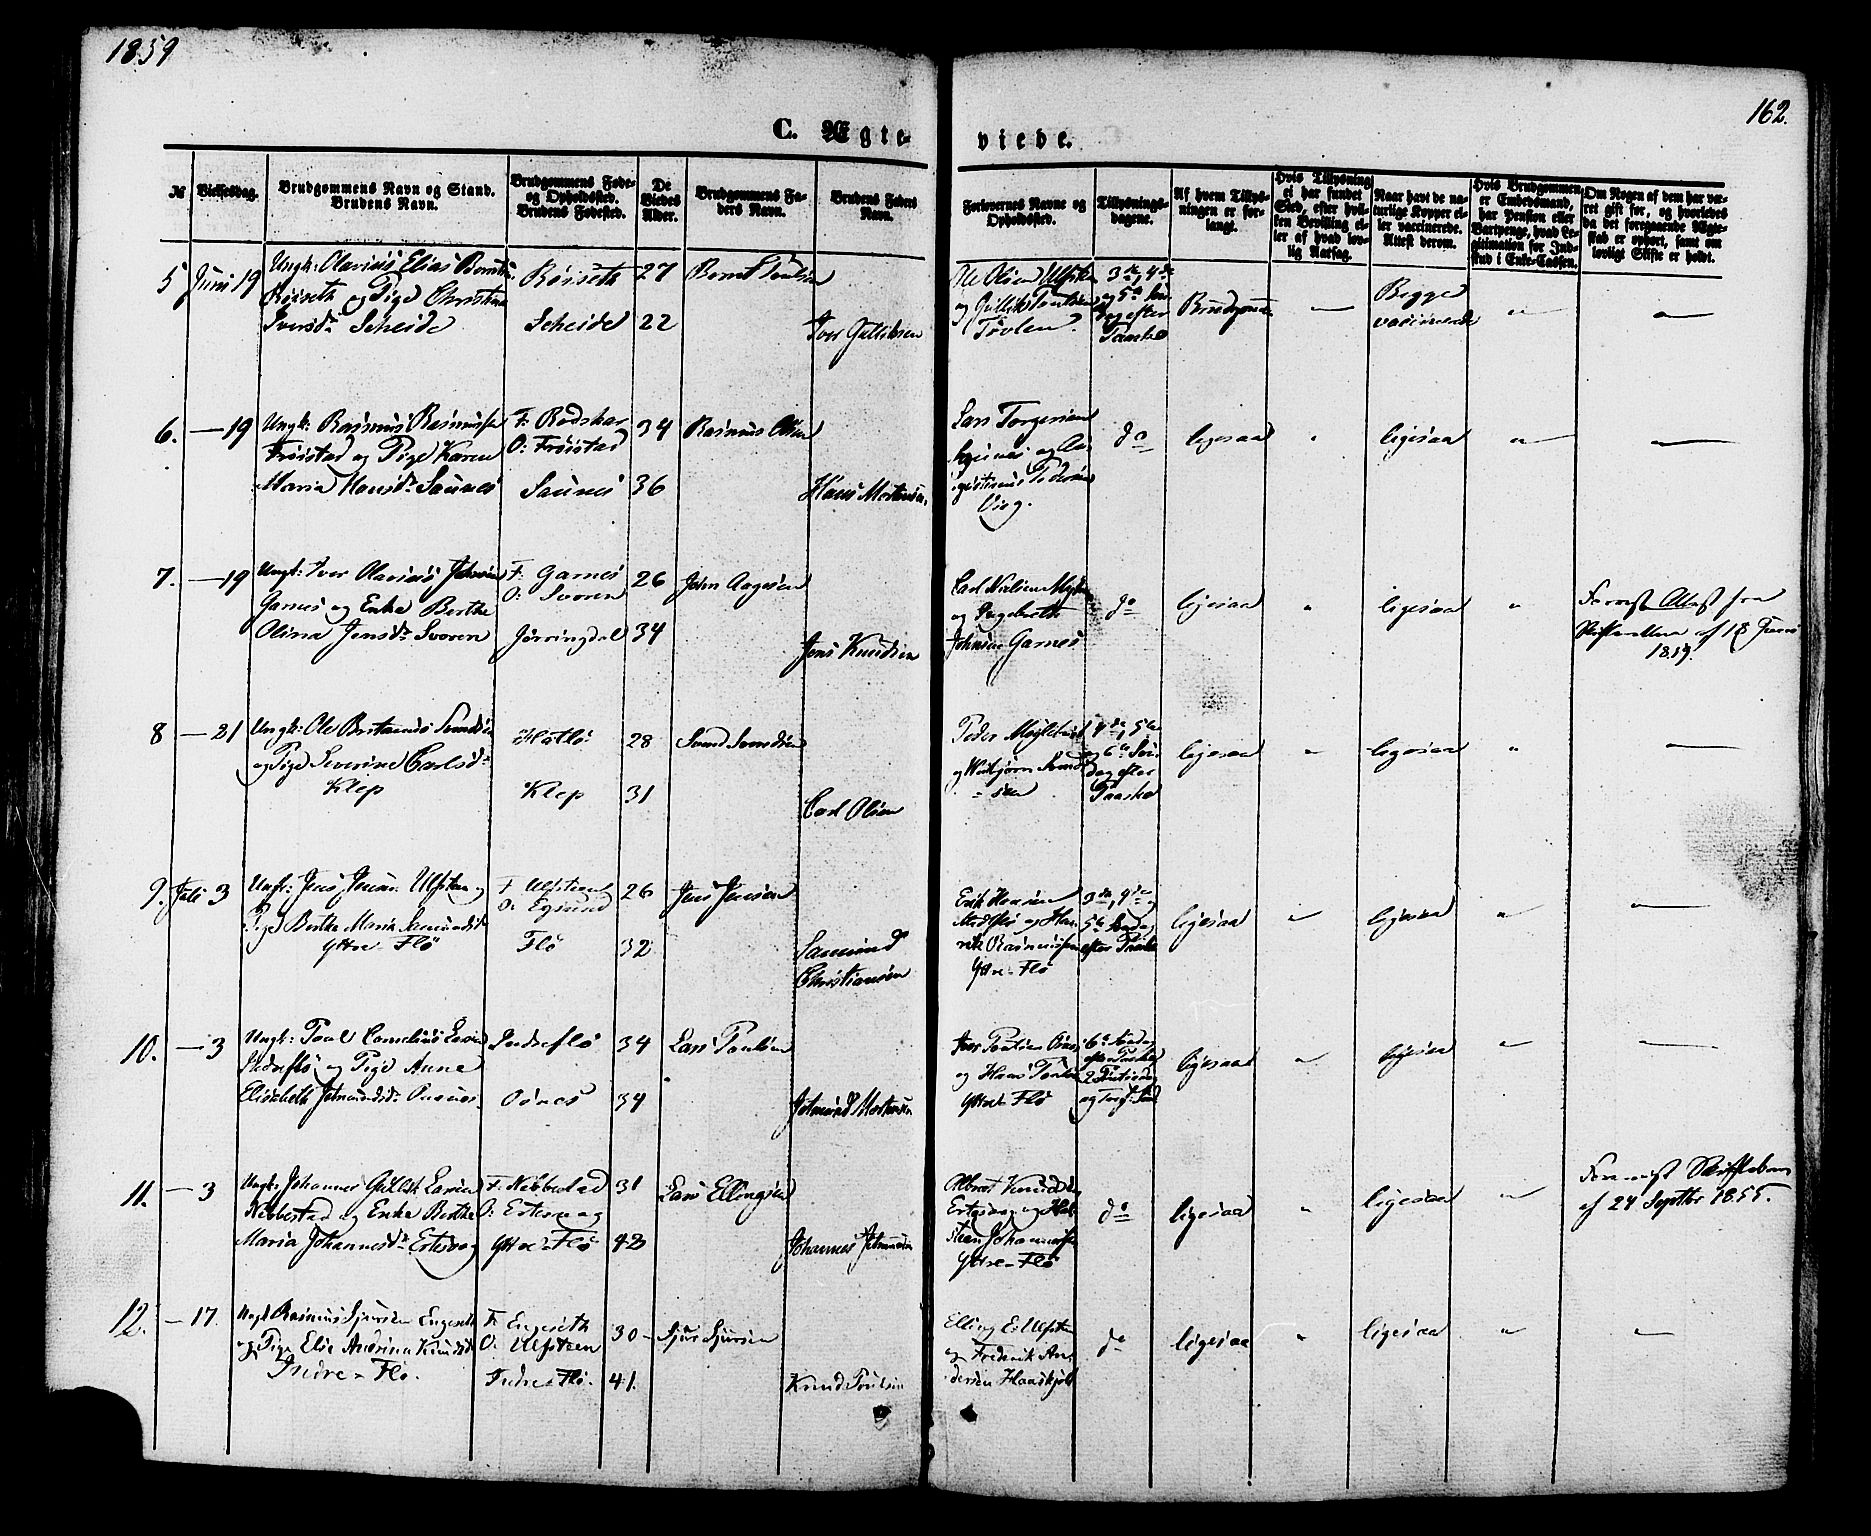 1859
162.
C. Ægte-
viede.
№
Vielsesdag.
Brudgommens Navn og Stand.
Brudens Navn.
Brudgommens Føde-
og Opholdssted.
Brudens Fødested.
De
Viedes
Alder.
Brudgommens Fa-
ders Navn.
Brudens Faders
Navn.
Forlovernes Navne og
Opholdssted.
Tillysnings-
dagene.
Af hvem Tillys-
ningen er for-
langt.
Hvis Tillysning
ei har fundet
Sted, efter hvil-
ken Bevilling el-
ler af hvad lov-
lig Aarsag.
Naar havt de na-
turlige Kopper el-
ler vaccinerede.
Attest derom.
Hvis Brudgommen
er Embedsmand,
har Pension eller
Vartpenge, hvad Le-
gitimation for Ind-
skud i Enke-Cassen.
Om Nogen af dem har væ-
ret gift før, og hvorledes
da det foregaaende Ægte-
skab er ophørt, samt om
lovligt Skifte er holdt.
5 Juni 19
Ungk: Olavius Elias Berntsen
Røiseth og Pige Christine
Iversdr Scheide
Røiseth
Scheide
27
22
Bernt Poulsen
Iver Gulliksen
Ole Olsen Ulfsten
og Gullik Poulsen
Tøvlen
3die, 4de
og 5te Søn-
dag efter
Paaske
Brudgom
—
Begge
vaccinerede
"
—
6. — 19
Ungk: Rasmus Rasmussen
Frøistad og Pige Karen
Maria Hansdr Saunes
F: Rødskar
O: Frøistad
Saunes
34
36
Rasmus Olsen
Hans Mortensen
Lars Torgersen
og Au-
gustinus Pedersen
Vieg.
do
ligesaa
"
ligesaa
"
—
7. — 19
Ungk: Iver Olavius Johnsen
Garnes og Enke Berthe
Olina Jensdr Svoren
F: Garnes
O: Svoren
Jørringdal
26
34
John Aagesen
Jens Knudsen
Carl Nielsen
og Ingebreth
Johnsen Garnes
do
ligesaa
"
ligesaa
"
Forevist Attest fra
Skifteretten af 18 Juni
1859.
8 — 21
Ungk: Ole Bertinus Svendsen
og Pige Severine Carlsdr
Klep
Hatlø
Klep
28
31
Svend Svendsen
Carl Olsen
Peder
og Svend-
sen
4de, 5te
og 6te Søn-
dag efter
Paaske
ligesaa
"
ligesaa
"
—
9. Juli 3
Ungk: Jens Jensen Ulfsten og
Pige Berthe Maria Samundsdr
Yttre Flø
F: Ulfsten
O: Egsund
Flø
26
32
Jens Jensen
Samund
Christiansen
Erik Hansen
og Hen-
rik Rasmussen
Yttre-Flø
3die, 4de og
5te Søndag
efter Paaske
ligesaa
"
ligesaa
"
—
10. — 3
Ungk: Poul Cornelius Larsen
Indreflø og Pige Anne
Elisabeth Jetmundsdr Osnes.
Indreflø
Osnes
34
34
Lars Poulsen
Jetmund Mortensen
Iver Poulsen Osnes
og Hans Poulsen
Yttre-Flø
6te Søndag
efter Paaske,
2 Pintsedag
ligesaa
"
ligesaa
"
—
11. — 3
Ungk: Johannes Gullik Larsen
Nebbestad og Enke Berthe
Maria Johannesdr Ertesvag
F: Nebbestad
O: Ertesvag
Yttre-Flø
31
42
Lars Ellingsen
Johannes Jetmundsen
Albret Knudsen
Ertesvag og Hal-
sten Johannesen
Yttre-Flø
do
ligesaa
"
ligesaa
"
Forevist Skiftebrev
af 24 Septbr 1855.
12. — 17.
Ungk: Rasmus Sjursen Engeseth
og Pige Elie Andrina Knudsdr
Indre-Flø.
F: Engeseth
O: Ulfsteen
Indre-Flø.
30
41.
Sjur Sjursen
Knud Poulsen
Elling E. Ulfsten
og Fredrik An-
dersen Haaskjold
do
ligesaa
"
ligesaa
"
—